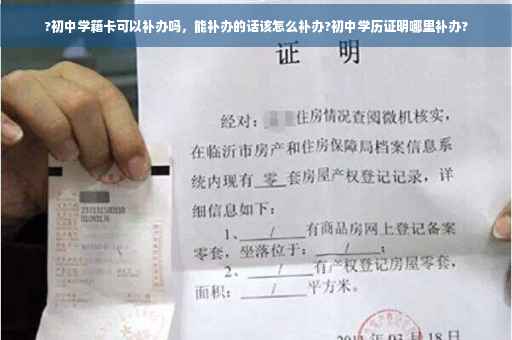 ?初中学籍卡可以补办吗，能补办的话该怎么补办?初中学历证明哪里补办?
证 明
经对： 住房情况查阅微机核实，
在临沂市房产和住房保障局档案信息系
统内现有 零 套房屋产权登记记录，详
细信息如下：
1、 / 有商品房网上登记备案
零套，坐落位于： / ；
2、 / 有产权登记房屋零套，
面积： / 平方米。